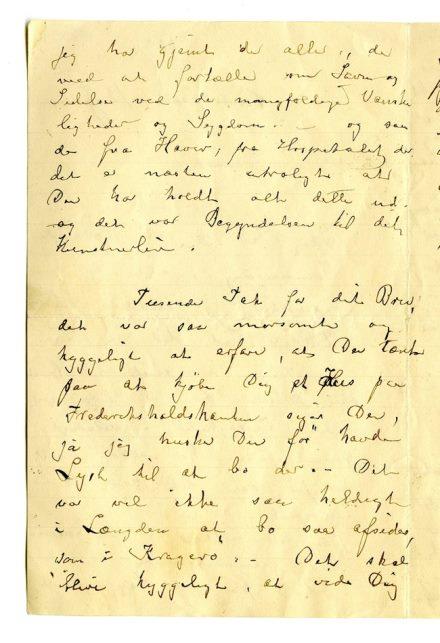 jeg har gjemt de alle, de
med at fortælle om Savn og
Lidelse ved de mangfoldige Vanske
ligheder og Sygdom. – og saa
de fra Havre, fra Hospitalet der
det er næsten utroligt at
Du har holdt alt dette ud.
og det var Begyndelsen til dit
Kunstnerliv.
Tusende Tak for dit Brev,
det var saa morsomt og
hyggeligt at erfare, at Du tænker
paa at kjøbe Dig et Hus paa
Fredrikshaldskanten siger Du,
ja jeg husker Du før havde
Lyst til at bo der. – Det
var vel ikke saa heldigt
i Længden at bo saa afsides,
som i Kragerø. – Det skal
blive hyggeligt, at vide Dig